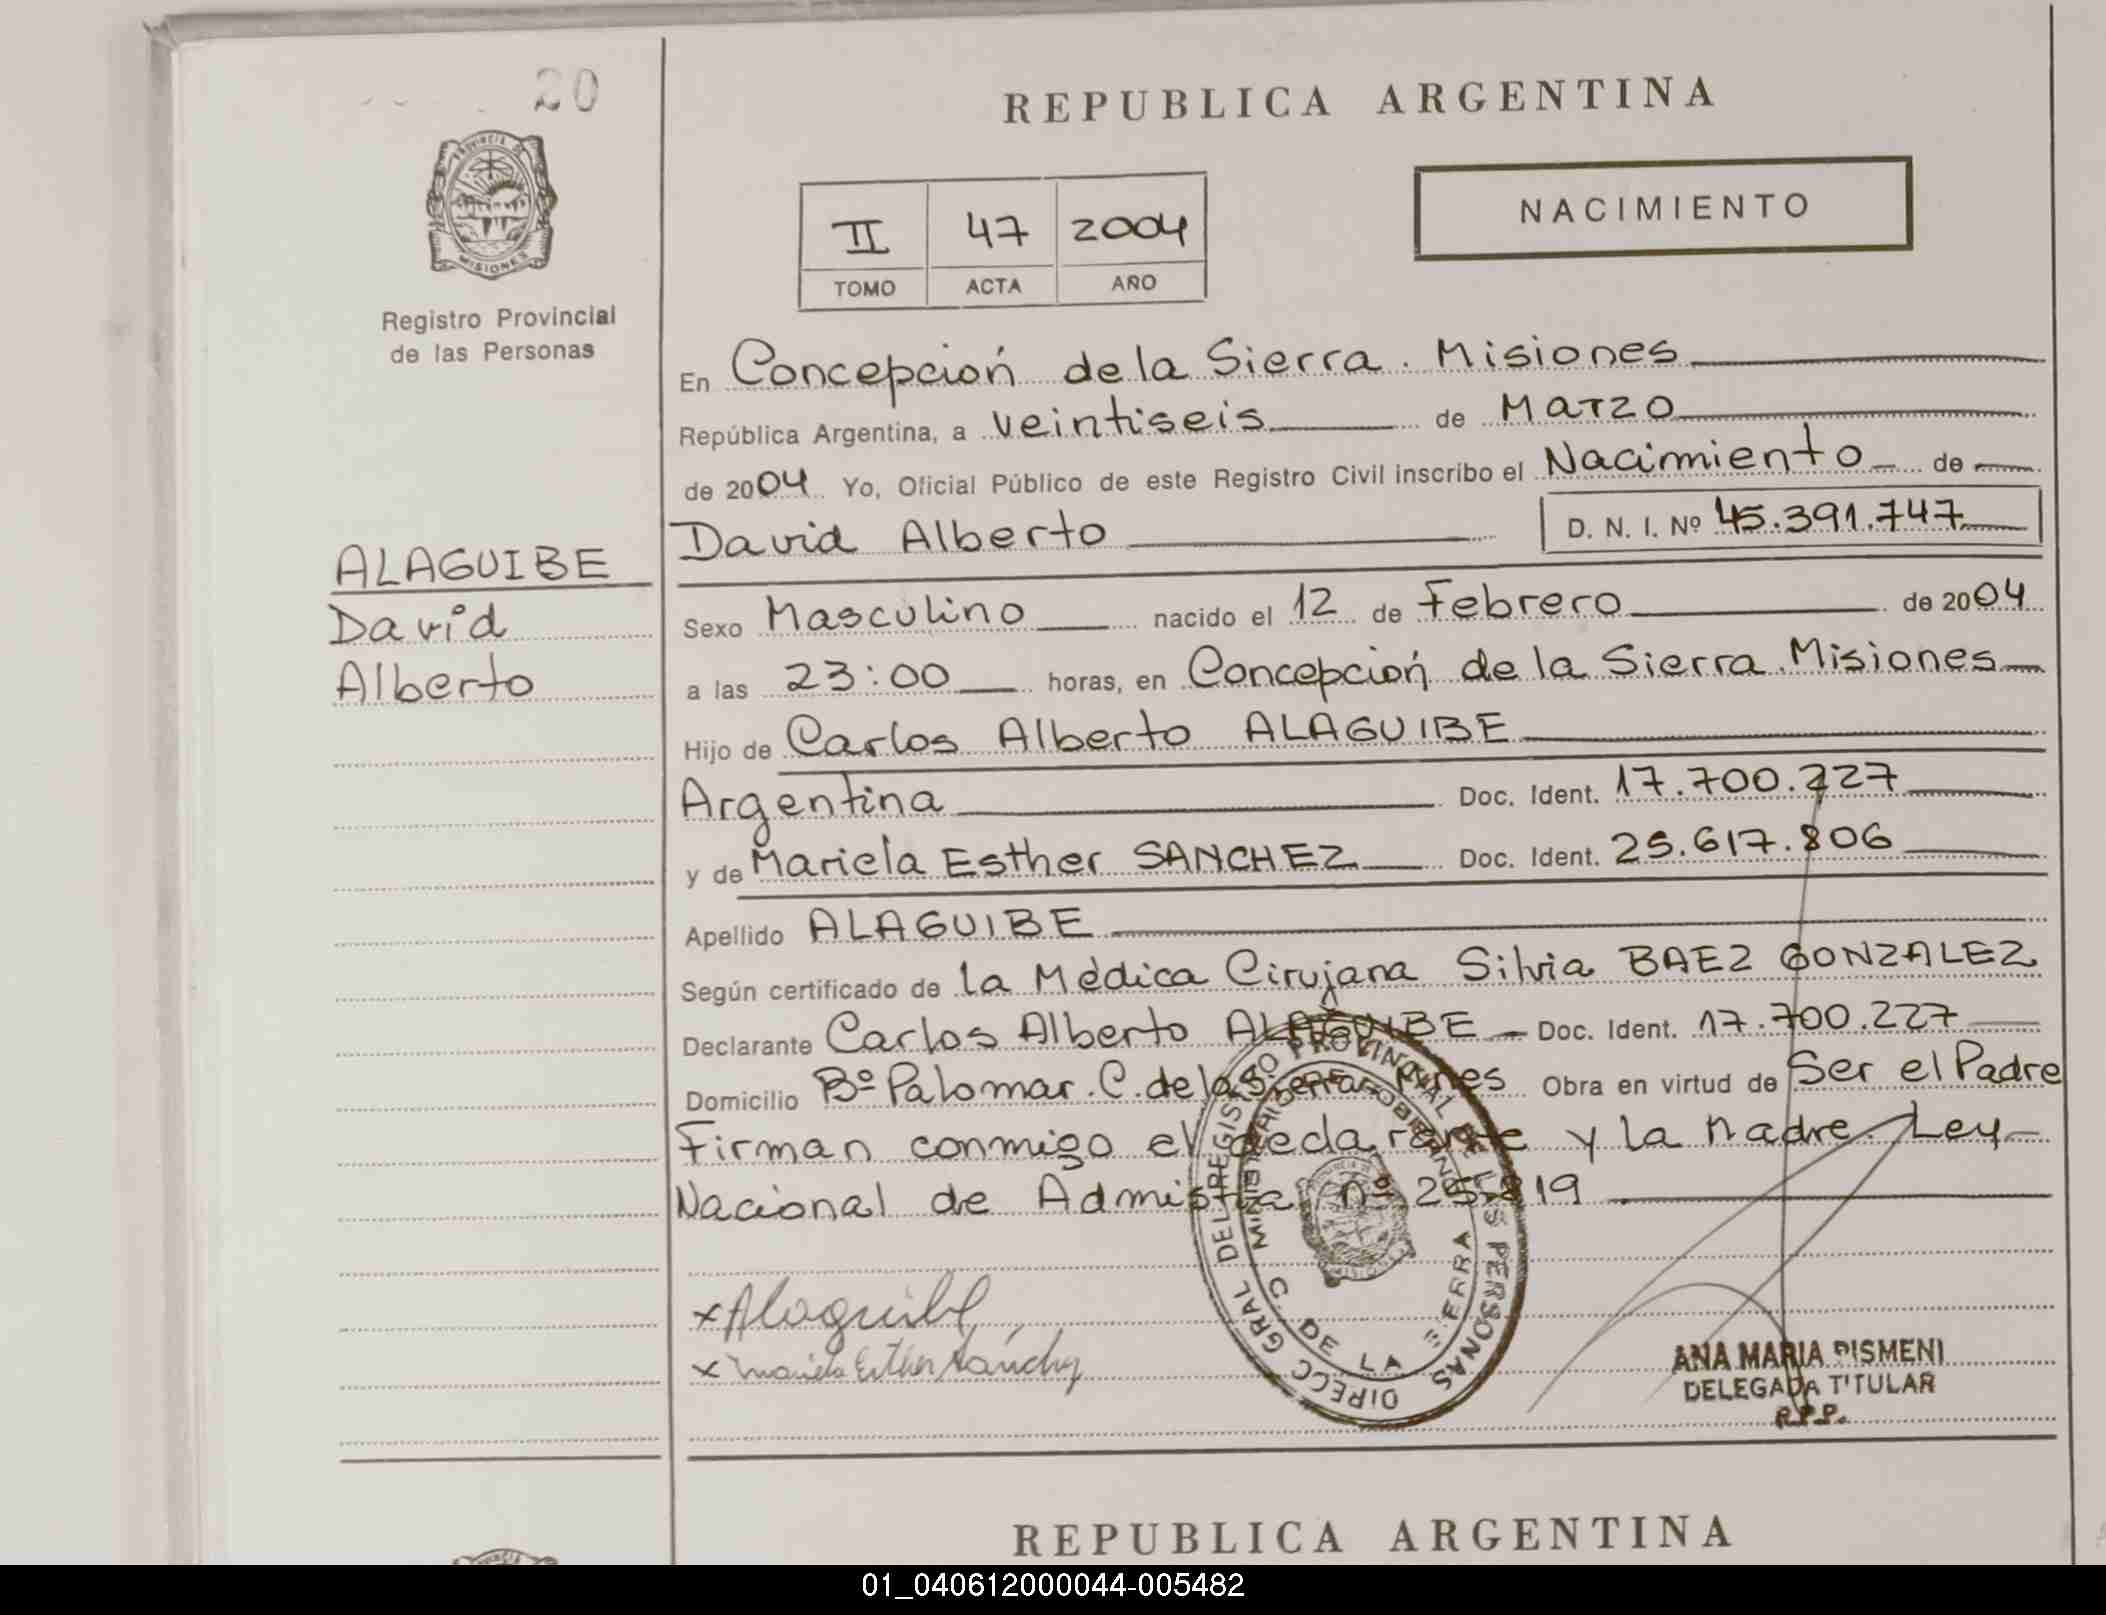 20
PROVINCIA DE
MISIONES
Registro Provincial
de las Personas
ALAGUIBE
David
Alberto
REPUBLICA ARGENTINA
II 47 2004
TOMO ACTA AÑO
NACIMIENTO
En Concepción de la Sierra. Misiones
República Argentina, a veintiseis de Marzo
de 2004 Yo, Oficial Público de este Registro Civil inscribo el Nacimiento de
David Alberto D. N. I. Nº 45.391.747
Sexo Masculino nacido el 12 de Febrero de 2004
a las 23:00 horas, en Concepción de la Sierra. Misiones
Hijo de Carlos Alberto ALAGUIBE
Argentina Doc. Ident. 17.700.227
y de Mariela Esther SANCHEZ Doc. Ident. 25.617.806
Apellido ALAGUIBE
Según certificado de la Médica Cirujana Silvia BAEZ GONZALEZ
Declarante Carlos Alberto ALAGUIBE Doc. Ident. 17.700.227
Domicilio Bº Palomar. C. de la Sierra. Mnes Obra en virtud de Ser el Padre
Firman conmigo el declarante y la Madre. Ley
Nacional de Admistia nº 25.819
DIRECC GRAL DEL REGISTRO PROVINCIAL DE LAS PERSONAS
MINISTERIO DE GOBIERNO
C DE LA SIERRA
x Alaguibe
x Mariela Esther Sánchez
ANA MARIA PISMENI
DELEGADA TITULAR
R.P.P.
REPUBLICA ARGENTINA
01_040612000044-005482